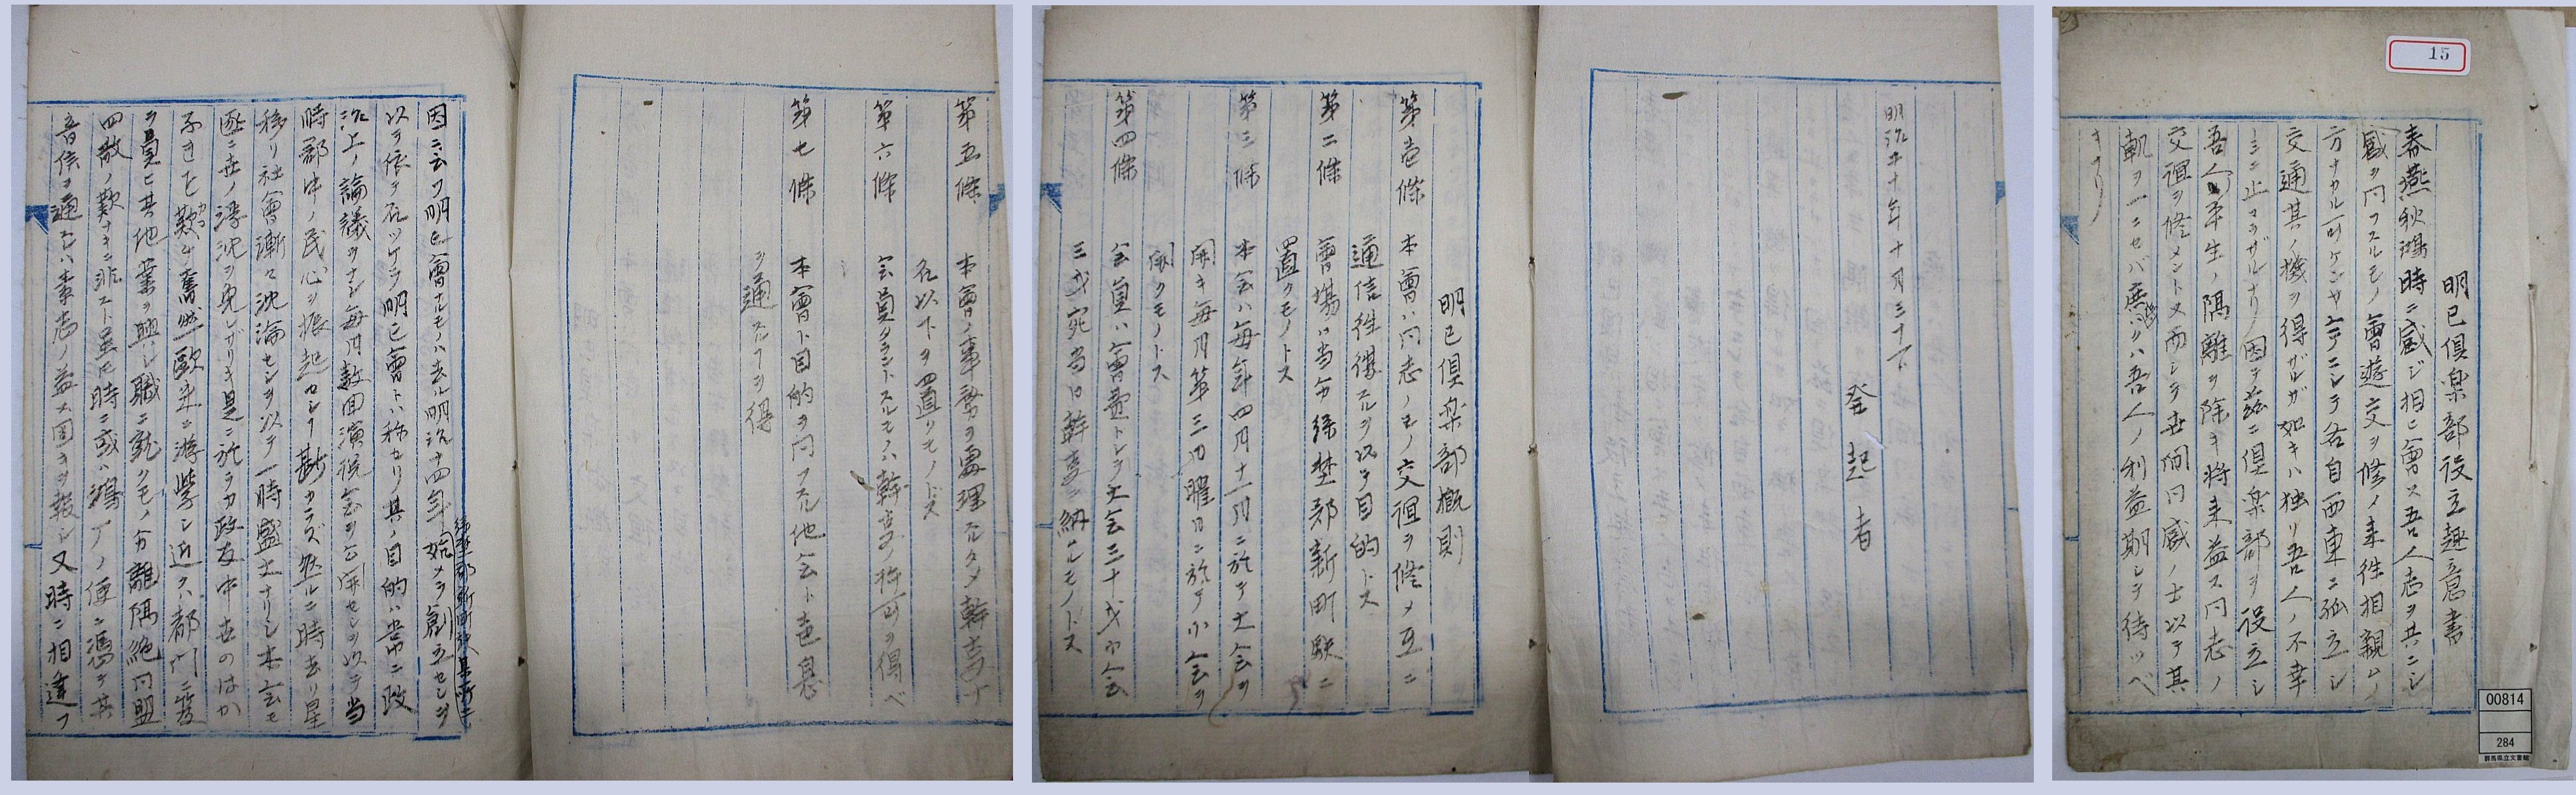 15
明巳倶楽部設立趣意書
春燕秋鴻時ニ感ジ相ヒ會ス吾人志ヲ共ニシ
感ヲ同フスルモノ會遊交ヲ修ノ来往相親ムノ
方ナカル可ケンヤ今ニシテ各自西東ニ孤立シ
交通其ノ機ヲ得ザルガ如キハ独リ吾人ノ不幸
ミニ止マラザルナリ因テ茲ニ倶楽部ヲ設立シ
吾人平生ノ隔離ヲ除キ将来益ス同志ノ
交誼ヲ修メントス而シテ世間同感ノ士以テ其
軌ヲ一ニセバ庶幾クハ吾人ノ利益期シテ待ツベ
キナリ
00814
284
群馬県立文書館
明治二十年十月三十一日
発起者
明巳倶楽部概則
第壱條 本會ハ同志ノモノ交誼ヲ修メ互ニ
通信往復スルヲ以テ目的トス
第二條 會場ハ当分緑埜郡新町駅ニ
置クモノトス
第三條 本会ハ毎年四月十一月ニ於テ大会ヲ
開キ毎月第三日曜日ニ於テ小会ヲ
開クモノトス
第四條 会員ハ會費トシテ大会三十戋小会
三戋宛当日幹事ニ納ムルモノトス
第五條 本會ノ事務ヲ處理スルタメ幹事
名以下ヲ置クモノトス
第六條 会員タラントスルモノハ幹事ノ許可ヲ得ベ
第七條 本會ト目的ヲ同フスル他会ト声息
ヲ通スル丁ヲ得
因ニ云フ明巳會ナルモノハ去ル明治十四年 始メテ創立センヲ
緑埜郡新町駅某所ニ
以テ依テ名ツケテ明巳會トハ称セリ其ノ目的ハ常ニ政
治上ノ論議ヲナシ毎月数回演説会ヲ公開センヲ以テ当
時郡中ノ民心ヲ振起セシ丁尠カラズ然ルニ時去リ星
移リ社會漸ク沈淪センヲ以テ一時盛大ナリシ本会モ
亟ニ世ノ浮沈ヲ免レザリキ是ニ於テカ政友中世のはか
なきを歎ち奮然欧米ニ游学シ近クハ都門ニ笈
ヲ負ヒ其他業ヲ興シ職ニ就クモノ分離隔絶同盟
四散ノ歎ナキニ非スト雖モ時ニ或ハ鴻アノ便ニ憑テ其
音信ヲ通スルハ素志ノ益ス固キヲ報シ又時ニ相逢フ